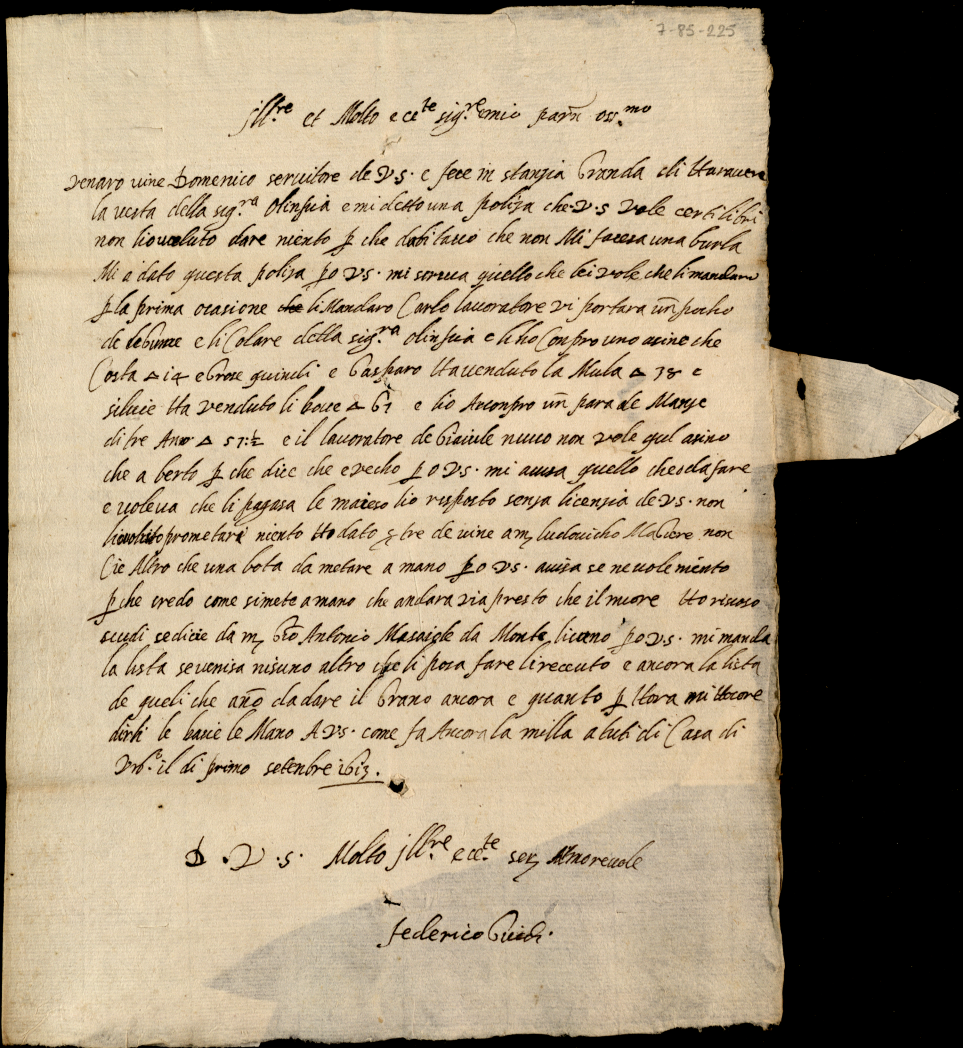 7-85-225
Ill.re et Molto ecc.te sig.re e mio parn oss.mo
venaro vine Domenico servitore de V.S. e fece in stanzia Granda di
la vesta della sig.ra Olinpia e mi detto una poliza che V.S vole certi libri
non lio voluto dare niento p che dubitavo che non Mi facesa una burla
Mi à dato questa poliza po V.S. mi scriva quello che lei vole che li mandaro
p la prima ocasione che li Mandaro Carlo lavoratore vi portara un pocho
de e li Colare della sig.ra olinpia e li ho Conpro uno asino che
Costa △ 14 e Grose quindi e Gasparo Ha venduto la Mula △ 38 e
silvie Ha venduto li bove △ 61 e lio Arconpro un para de Manze
di tre Ani △ 57:½ e il lavoratore de novo non vole qul asino
che a berto p che dice che e vecho po V.S. mi avisa quello che o da fare
e voleva che li pagasa le maiese lio risposto senza licenzia de V.S. non
prometari niento Ho dato tre de vine a m ludovicho non
Cie Altro che una bota da metare a mano po V.S. avisa se ne vole niento
p che credo come si mete a mano che andara via presto che il more Ho riscoso
scudi sedicie da m Gio Antonio da Monte po V.S. mi manda
la lista se venisa nisuno altro che li posa fare li receuto e ancora la lista
de queli che ano da dare il Grano ancora e quanto p Hora mi Hocore
dirli le bacie le Mano A V.S. come fa Ancora la milla a tuti di Casa di
Urb.o il di primo setenbre 1613.
D . V . S . Molto Ill.re e ecc.te ser Amorevole
federico Guidi.